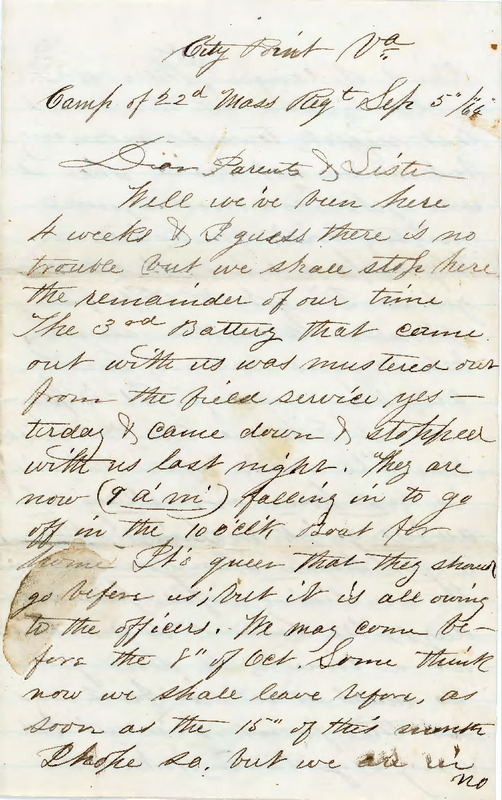 City Point Va
Camp of 22d Mass Regt Sep 5"/64
Dear Parents & Sister
Well we've bin here
4 weeks & I guess there is no
trouble but we shall stop here
the remainder of our time
The 3rd Battery that came
out with us was mustered out
from the field service yes-
terday & came down & stopped
with us last night. They are
now (9 a'm') falling in to go
off in the 10 o'clk Boat for
home It's queer that they should
go before us; but it is all owing
to the officers. We may come be-
fore the 8" of Oct. Some think
now we shall leave before, as
soon as the 15" of this month
I hope so, but we are in
no